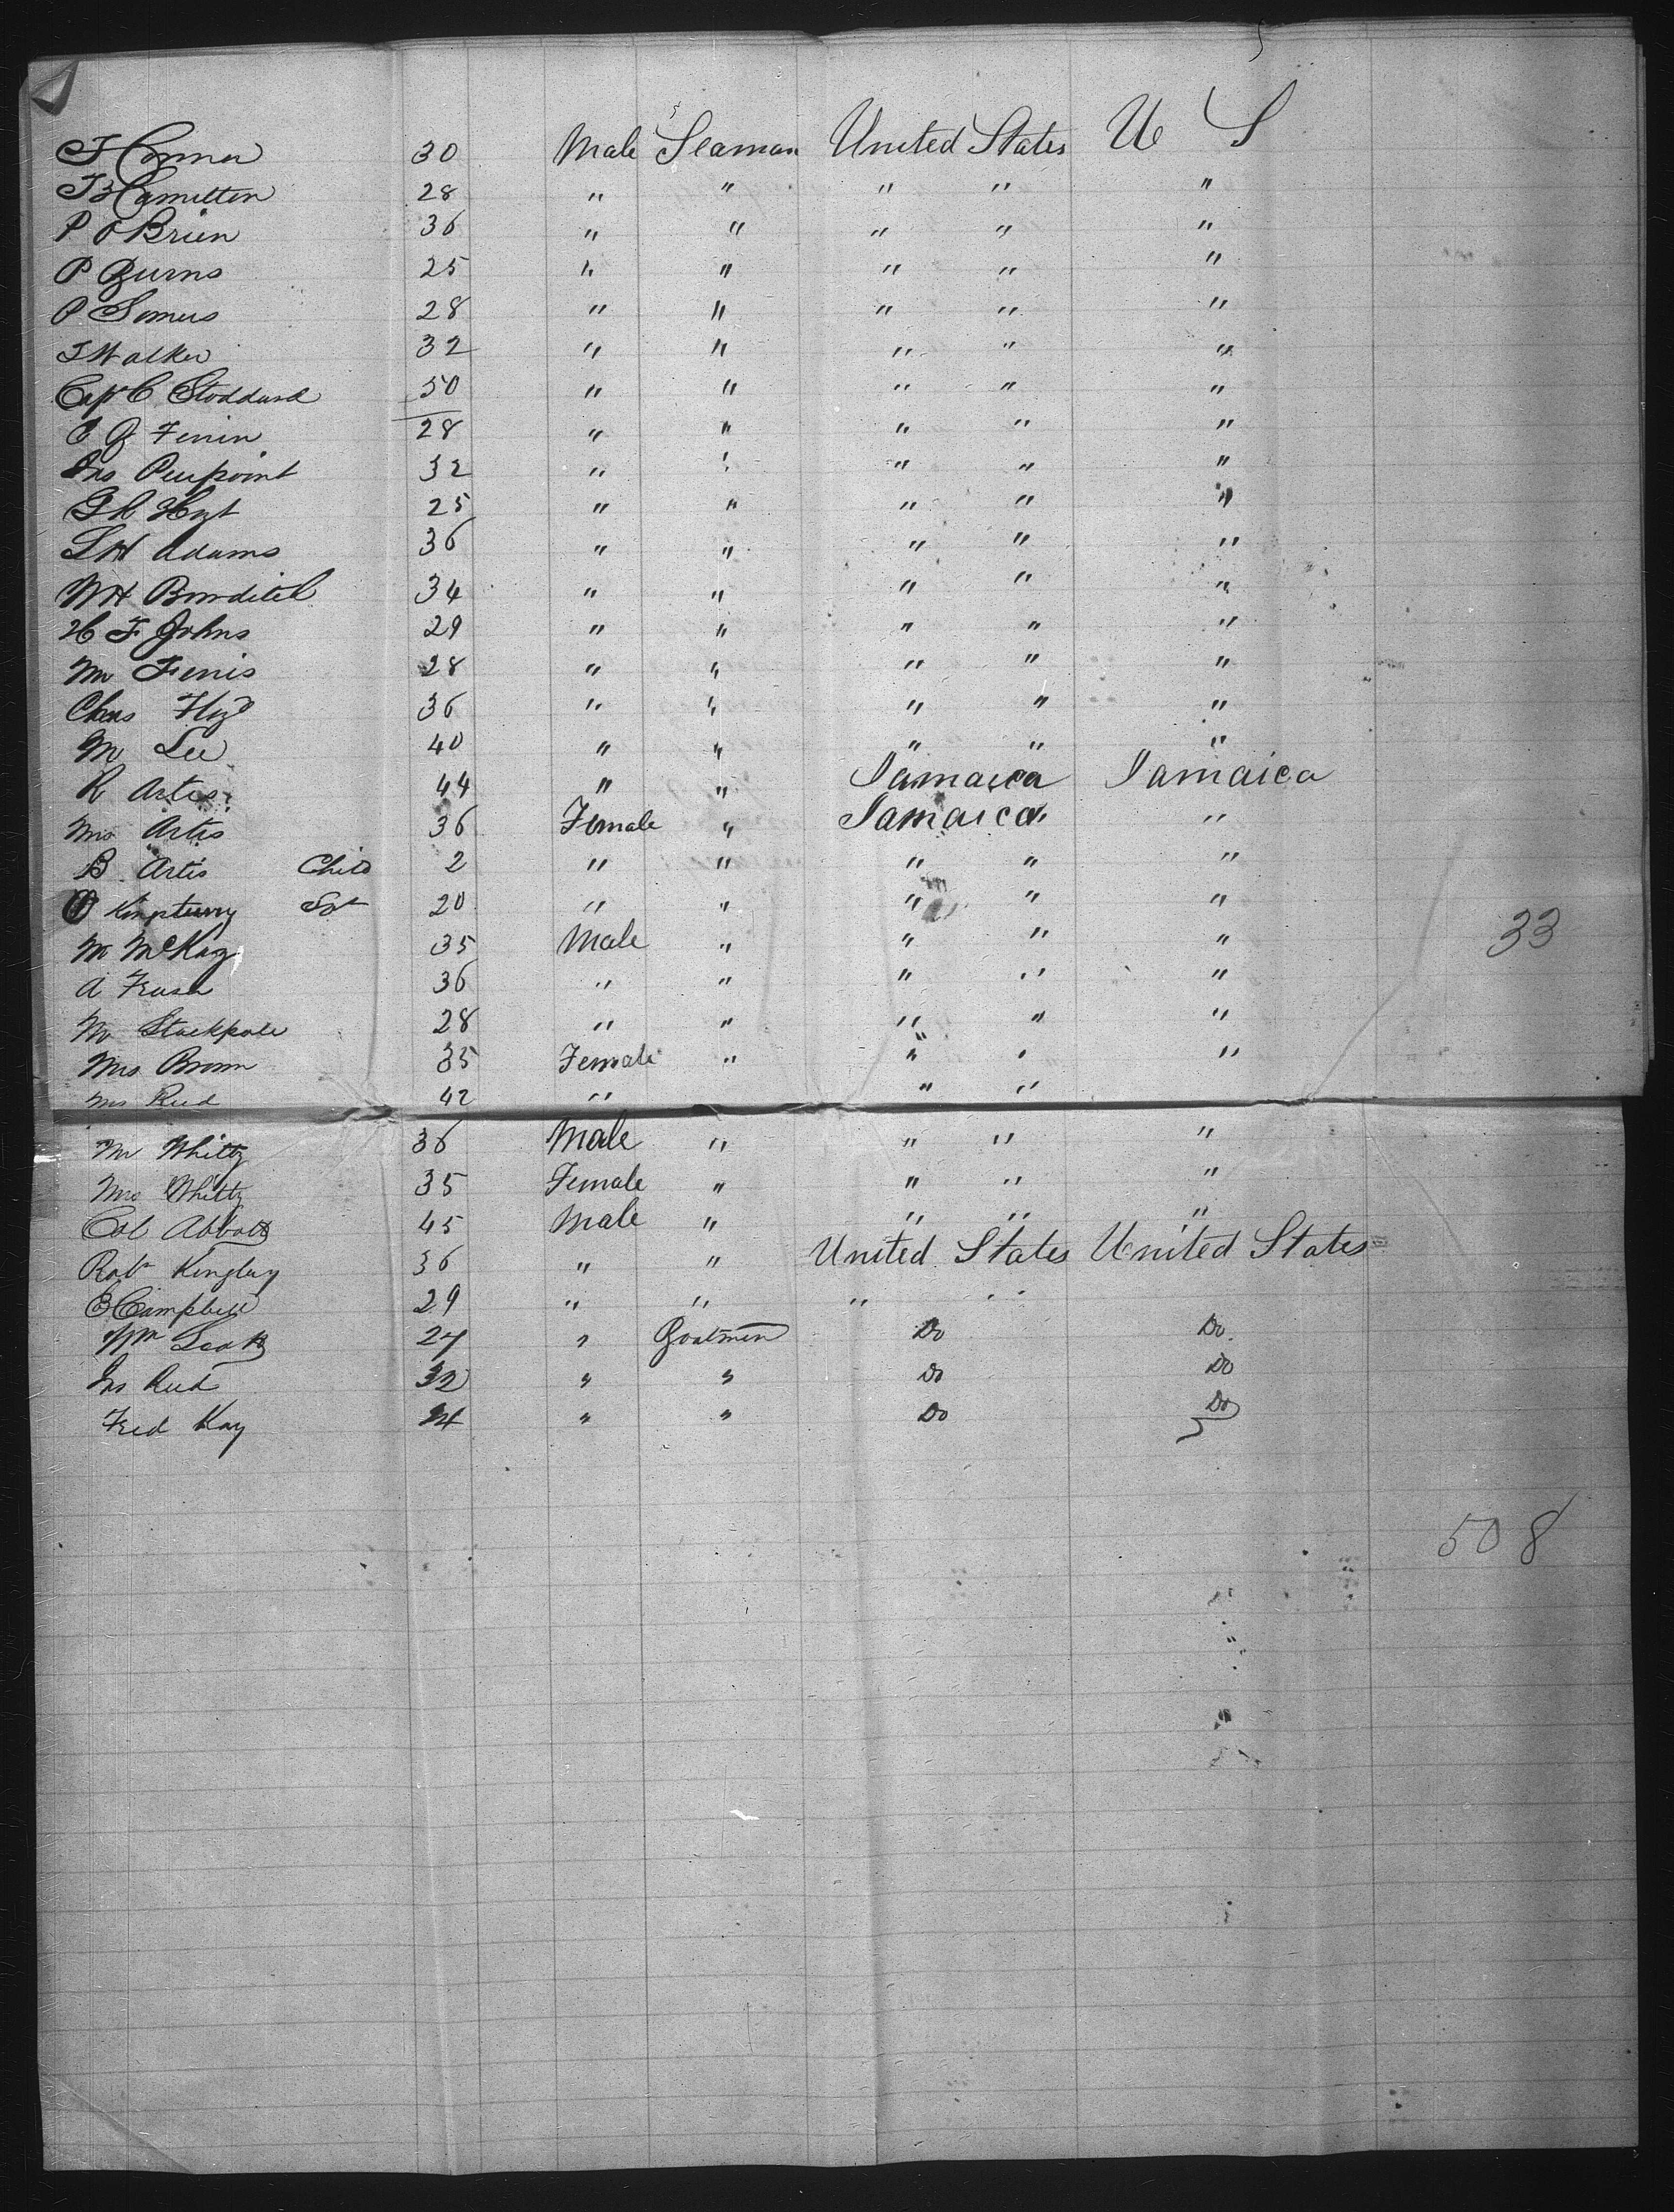 T Conner 30 Male Seaman United States U S
J B Hamilton 28 " " " " "
P O Brien 36 " " " " "
P Burns 25 " " " " "
P Somers 28 " " " " "
J Walker 32 " " " " "
Capt C Stoddard 50 " " " " "
28 " " " " "
Jno Pierpoint 32 " " " " "
25 " " " " "
S H Adams 36 " " " " "
W H Bowditch 34 " " " " "
H F Johns 29 " " " " "
Mr Ferris 28 " " " " "
Chas 36 " " " " "
Mr Lee 40 " " " " "
R Artis 44 " " Jamaica Jamaica
Mrs Artis 36 Female " Jamaica "
B Artis Child 2 " " " " "
20 " " " " "
Mr McKay 35 Male " " " "
A 36 " " " " "
Mr Stackpole 28 " " " " "
Mrs Brown 35 Female " " " "
Mrs Reed 42 " " "
Mr Whitty 36 Male " " " "
Mrs Whitty 35 Female " " " "
Col Abbott 45 Male " " " "
Robt 36 " " United States United States
Campbell 29 " " " "
Wm Scott 27 " Boatmen Do Do
Jno Reed 32 " " Do Do
Fred Kay " " Do Do
33
508